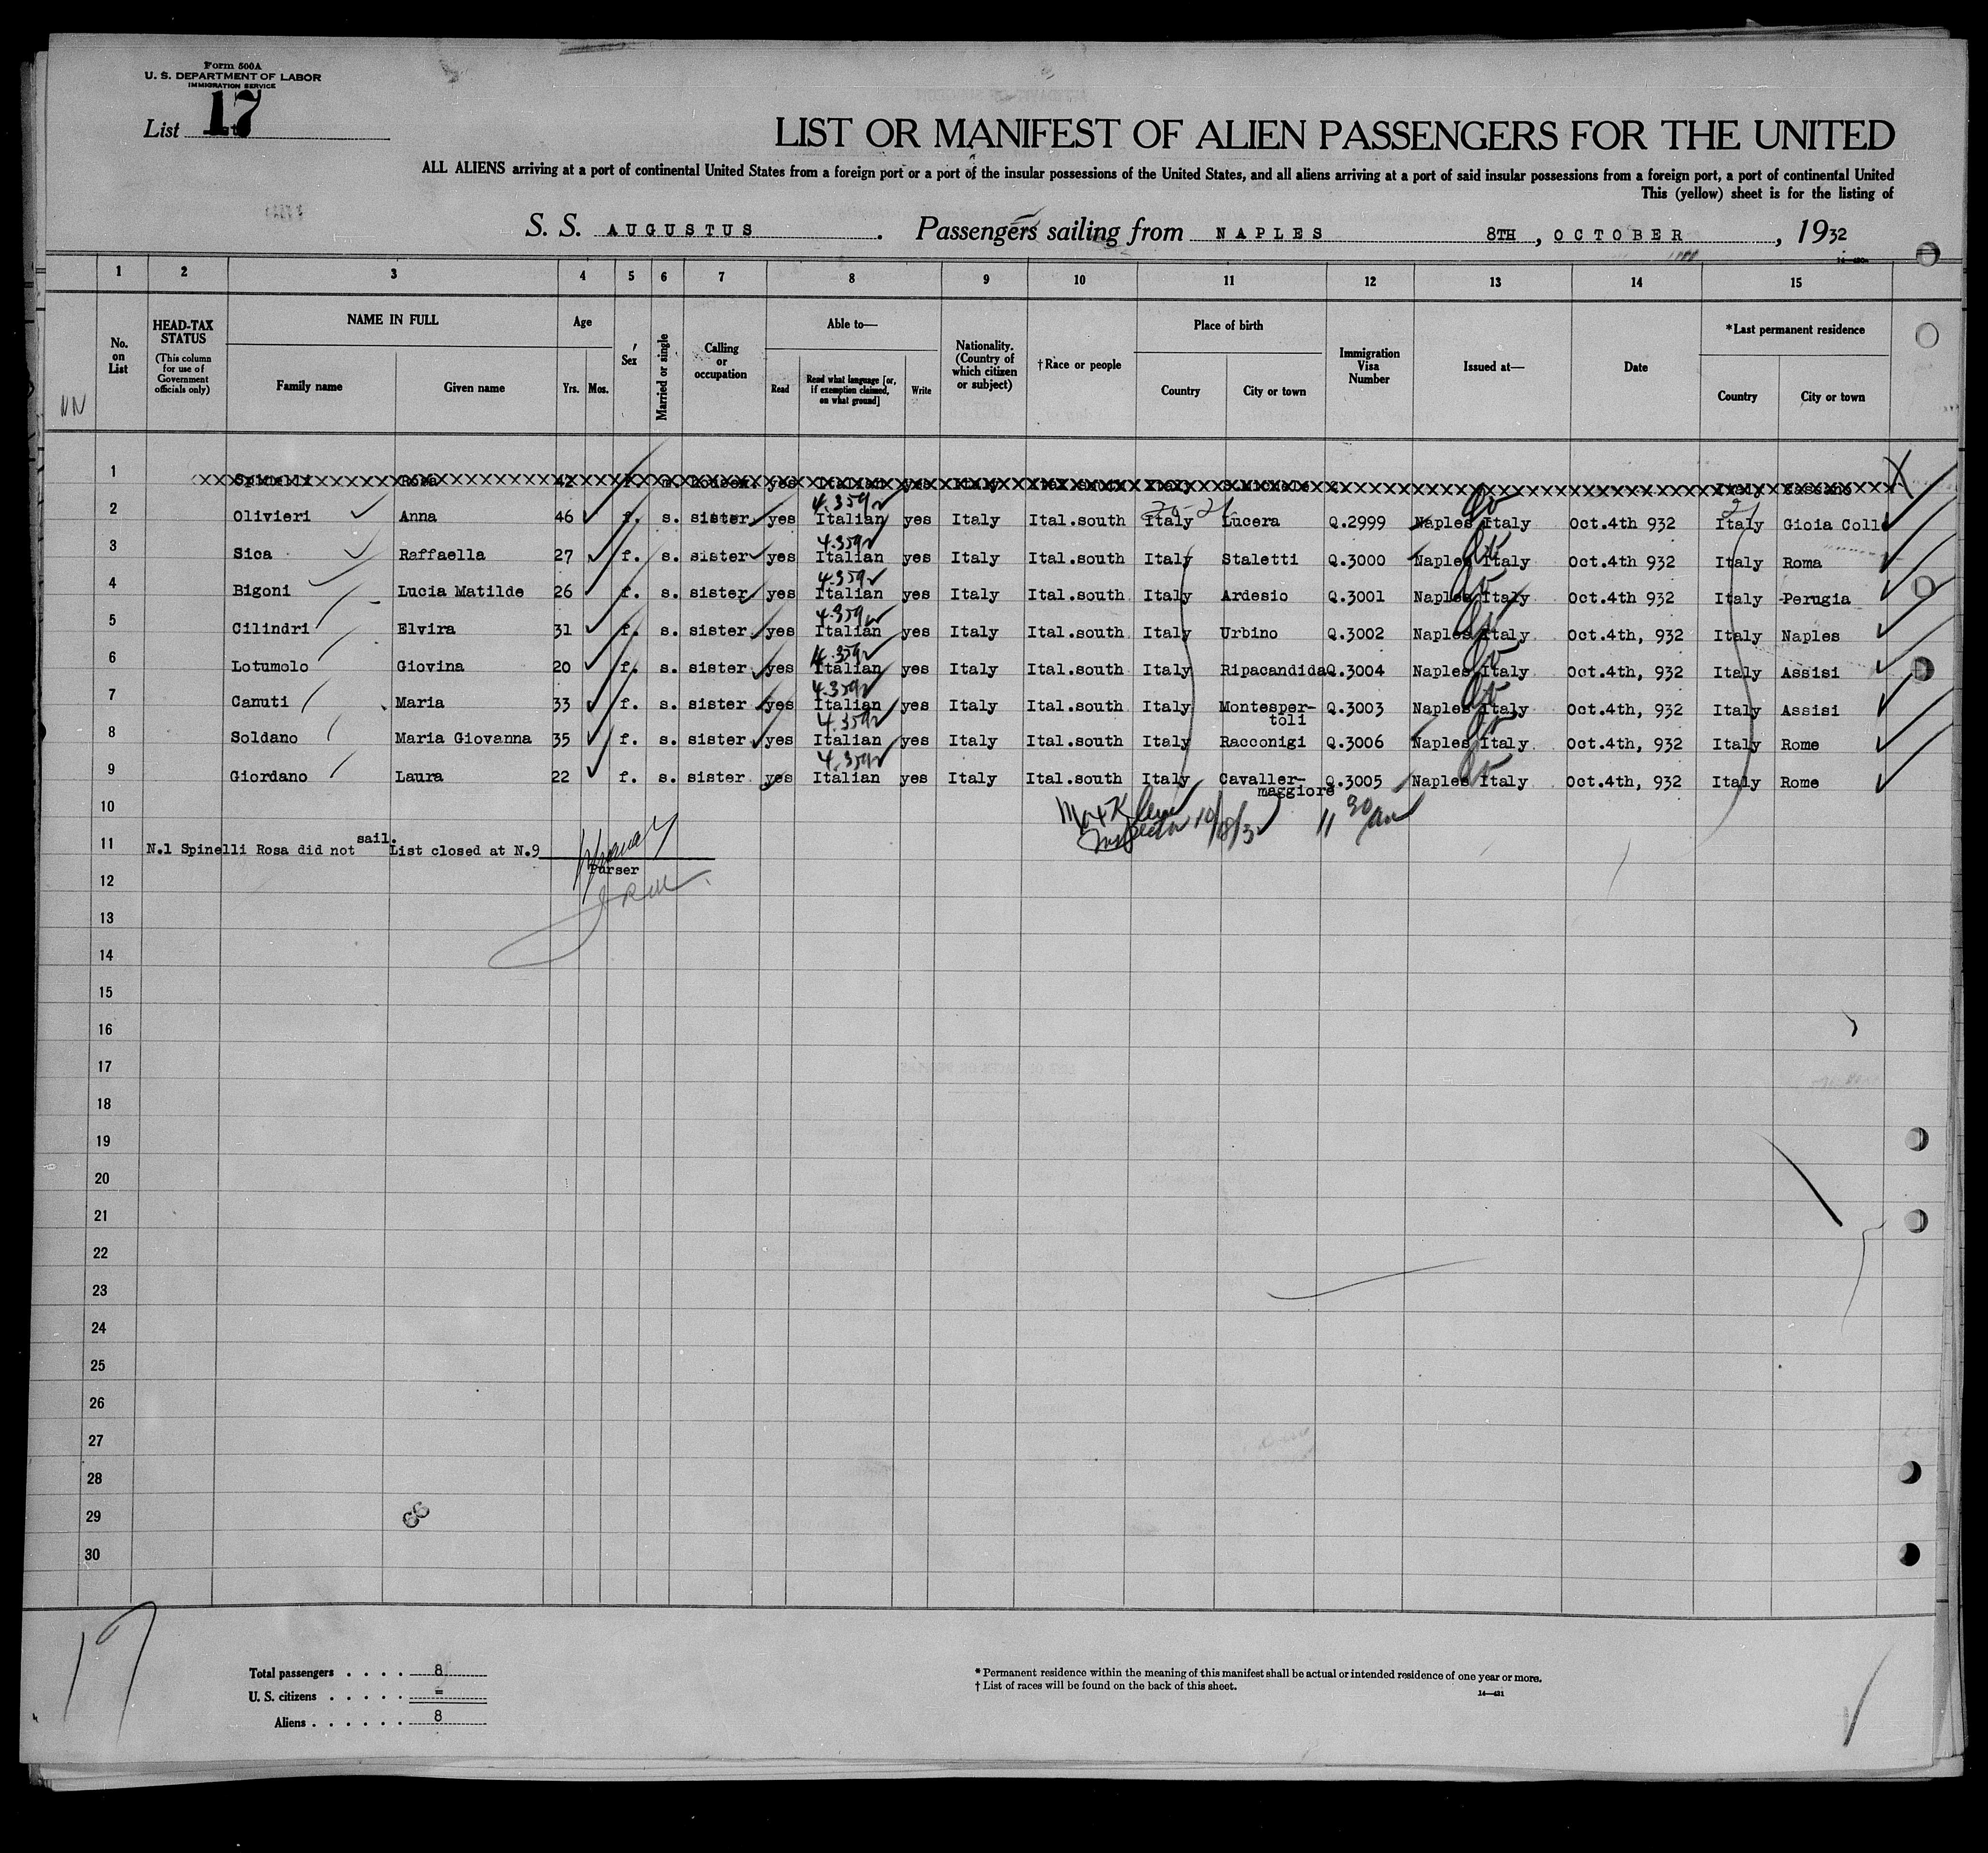 Form 500A
U. S. DEPARTMENT OF LABOR
IMMIGRATION SERVICE
List 17
LIST OR MANIFEST OF ALIEN PASSENGERS FOR THE UNITED
ALL ALIENS arriving at a port of continental United States from a foreign port or a port of the insular possessions of the United States, and all aliens arriving at a port of said insular possessions from a foreign port, a port of continental United
This (yellow) sheet is for the listing of
S. S. AUGUSTUS . Passengers sailing from NAPLES 8TH , OCTOBER , 1932
1 2 3 4 5 6 7 8 9 10 11 12 13 14 15
No. on List
HEAD-TAX STATUS (This column for use of Government officials only)
NAME IN FULL
Family name Given name
Age
Yrs. Mos.
Sex
Married or single
Calling or occupation
Able to—
Read
Read what language [or, if exemption claimed, on what ground]
Write
Nationality. (Country of which citizen or subject)
†Race or people
Place of birth
Country City or town
Immigration Visa Number
Issued at—
Date
*Last permanent residence
Country City or town
1 Spinelli Rosa 42 f. m. yes Italian yes Italy Ital.south Italy S.Michele Italy Cassano
20-21
2 Olivieri Anna 46 f. s. sister yes Italian yes Italy Ital.south Italy Lucera Q.2999 Naples Italy Oct.4th 932 Italy Gioia Coll
3 Sica Raffaella 27 f. s. sister yes Italian yes Italy Ital.south Italy Staletti Q.3000 Naples Italy Oct.4th 932 Italy Roma
4 Bigoni Lucia Matilde 26 f. s. sister yes Italian yes Italy Ital.south Italy Ardesio Q.3001 Naples Italy Oct.4th 932 Italy Perugia
5 Cilindri Elvira 31 f. s. sister yes Italian yes Italy Ital.south Italy Urbino Q.3002 Naples Italy Oct.4th, 932 Italy Naples
6 Lotumolo Giovina 20 f. s. sister yes Italian yes Italy Ital.south Italy Ripacandida Q.3004 Naples Italy Oct.4th, 932 Italy Assisi
7 Canuti Maria 33 f. s. sister yes Italian yes Italy Ital.south Italy Montesper- Q.3003 Naples Italy Oct.4th, 932 Italy Assisi
toli
8 Soldano Maria Giovanna 35 f. s. sister yes Italian yes Italy Ital.south Italy Racconigi Q.3006 Naples Italy Oct.4th, 932 Italy Rome
9 Giordano Laura 22 f. s. sister yes Italian yes Italy Ital.south Italy Cavaller- Q.3005 Naples Italy Oct.4th, 932 Italy Rome
maggiore
10
Inspector 10/18/32 11 30 am
11 N.1 Spinelli Rosa did not sail. List closed at N.9
Purser
12
13
14
15
16
17
18
19
20
21
22
23
24
25
26
27
28
29
30
17
Total passengers . . . . 8
U. S. citizens . . . . . =
Aliens . . . . . . 8
* Permanent residence within the meaning of this manifest shall be actual or intended residence of one year or more.
† List of races will be found on the back of this sheet.
14—421